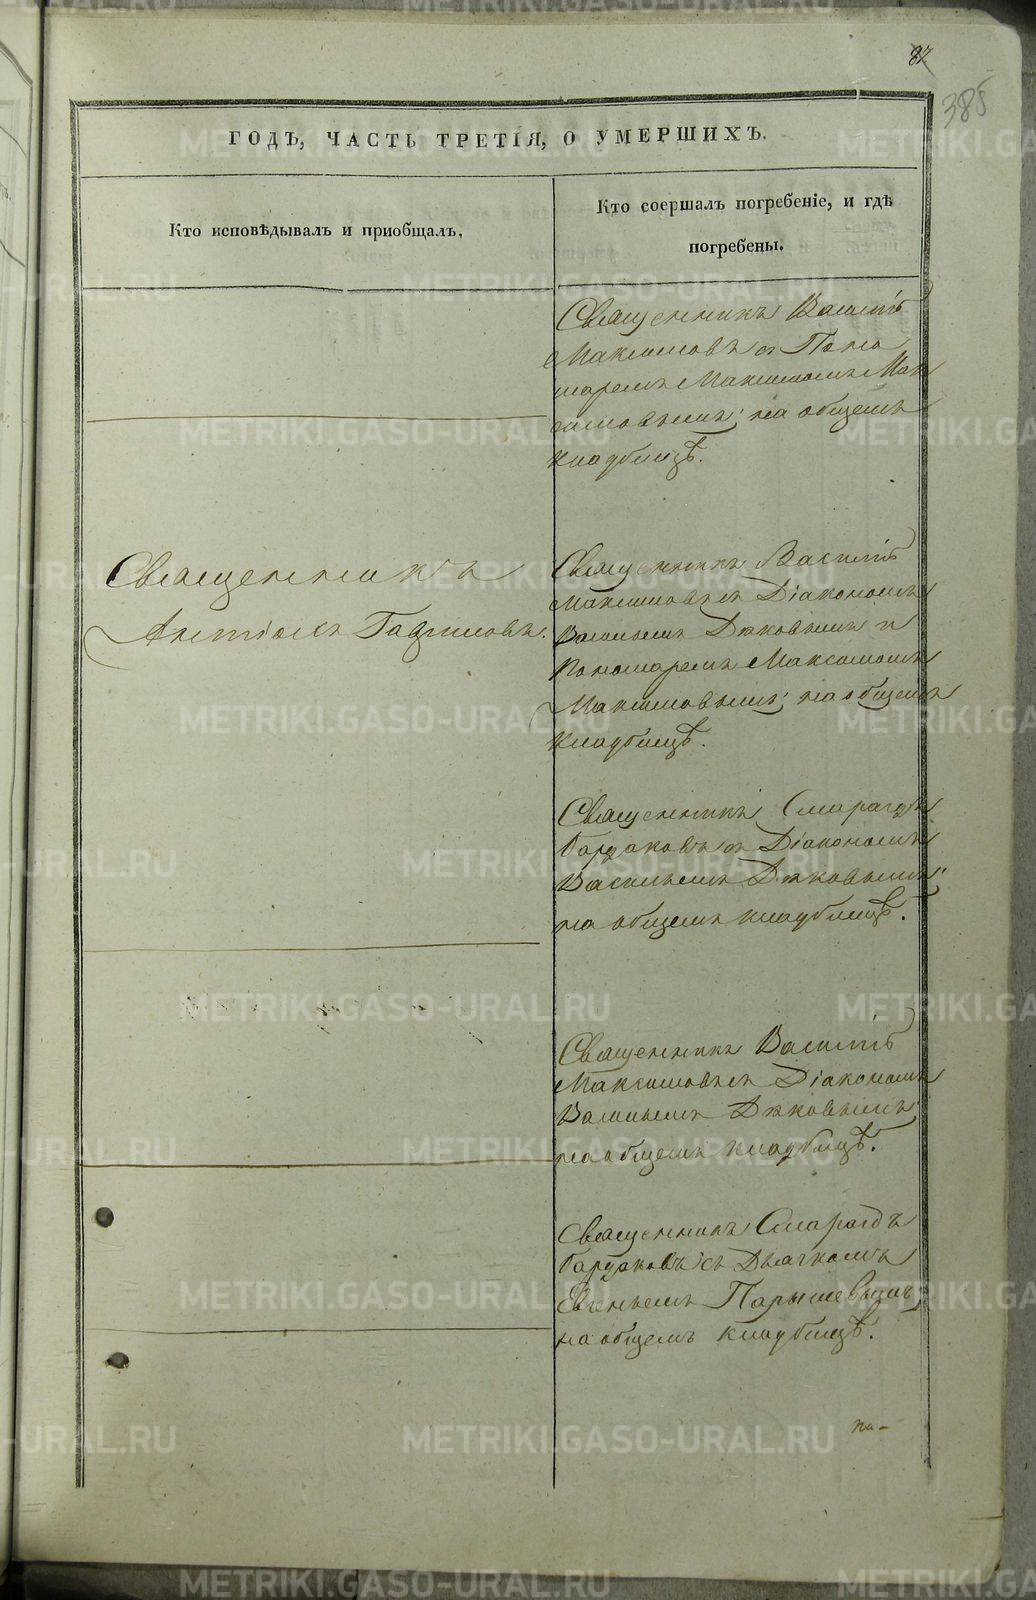 87
385
ГОДЪ, ЧАСТЬ ТРЕТІЯ, О УМЕРШИХЪ.
Кто исповѣдывалъ и приобщалъ,
Кто соершалъ погребеніе, и гдѣ
погребены.
Священникъ Василій
Максимовъ съ Поно
маремъ Максимомъ Мак
симовымъ; на общемъ
кладбищѣ.
Священникъ
Антіохъ Гаврiиловъ.
Священникъ Василій
Максимовъ съ Діакономъ
Васильемъ Дьковымъ и
Пономаремъ Максимомъ
Максимовымъ; на общемъ
кладбищѣ.
Священникъ Смарагдъ
съ Діакономъ
Васильемъ Дьковымъ;
на общемъ кладбищѣ.
Священникъ Василій
Максимовъ съ Діакономъ
Васильемъ Дьковымъ
на общемъ кладбищѣ.
Священникъ Смарагдъ
съ Дьячкомъ
Евгеньемъ Парышевымъ,
на общемъ кладбищѣ.
па-
METRIKI.GASO-URAL.RU